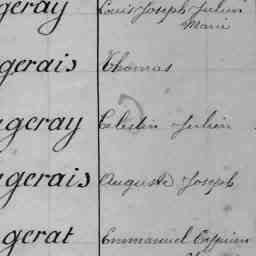 geray Louis Joseph Julien
Marie
gerais Thomas
geray Celestin Julien
gerais Auguste Joseph
gerat Emmanuel Cyprien